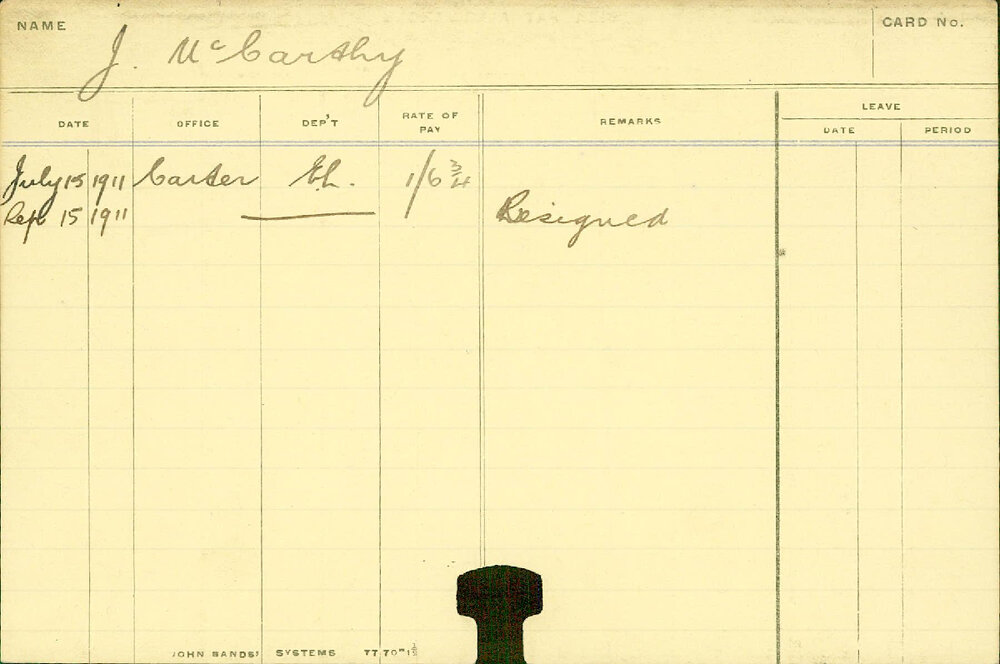 NAME J. McCarthy CARD No.
DATE OFFICE DEP'T RATE OF PAY REMARKS LEAVE
DATE PERIOD
July 15 1911 Carter 1/6 3/4
Sep 15 1911 Resigned
JOHN SANDS' SYSTEMS